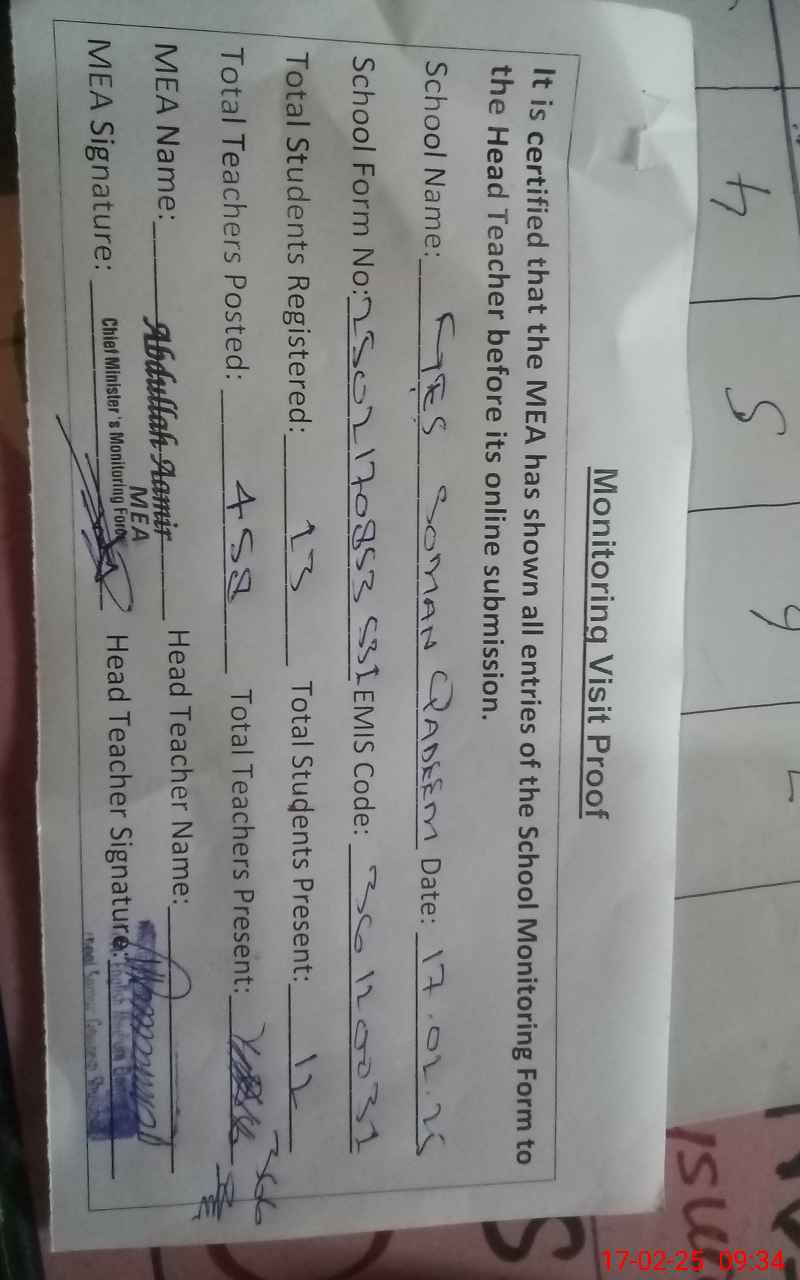 Monitoring Visit Proof
It is certified that the MEA has shown all entries of the School Monitoring Form to
the Head Teacher before its online submission.
School Name: SOMAN QADEEM Date: 17.02.25
School Form No: EMIS Code:
Total Students Registered: 13 Total Students Present: 12
Total Teachers Posted: 458 Total Teachers Present: 366
MEA Name: Abdullah Aamir Head Teacher Name:
MEA
Chief Minister's Monitoring Force
MEA Signature: Head Teacher Signature:
4 5 y
17-02-25 09:34